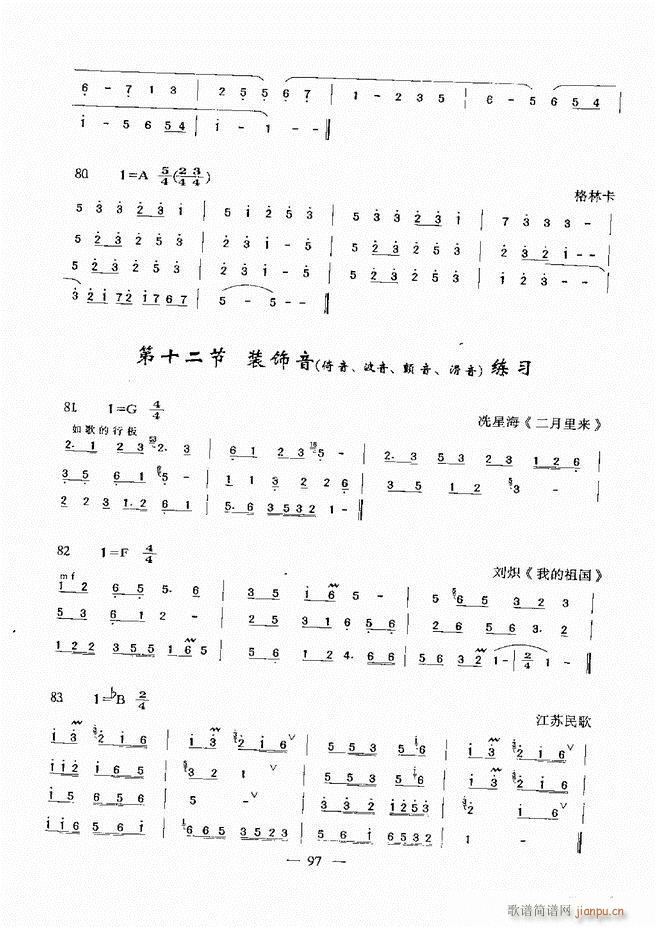 6 - 7 1 3 | 2 5 5 6 7 | 1 - 2 3 5 | 6 - 5 6 5 4 |
i - 5 6 5 4 | i - 1 - - ‖
80. 1=A 5/4(2/4 3/4)
格林卡
5 3 3 2 3 1 | 5 1 2 5 3 | 5 3 3 2 3 1 | 7 3 3 3 - |
5 2 3 2 5 3 | 2 3 i - 5 | 5 2 3 2 5 3 | 2 3 2 1 - |
5 2 3 2 5 3 | 2 3 i - 5 | 5 2 3 2 5 3 | 1 2 3 - - |
3 2 1 7 2 1 7 6 7 | 5 - 5 - - ‖
第十二节 装饰音(倚音、波音、颤音、滑音)练习
81. 1=G 4/4
冼星海《二月里来》
如歌的行板
2. 1 2 3 2. 3 | 6 1 2 3 5 - | 2. 3 5 3 2 3 1 2 6 |
3 5 6 1 5 - | 1 1 3 2 2 6 | 3 5 1 2 3 - |
2 2 3 1. 2 6 1 | 5. 6 3 5 3 2 1 - ‖
82 1=F 4/4
刘炽《我的祖国》
mf
1 2 6 5 5. 6 | 3 5 i 6 5 - | 5 6 5 3 2 3 |
5 3 6 1 2 - | 2 5 3 1 6 5 6 | 2 6 5 6 3. 2 |
1 2 2 2 3 5 5 1 6 5 | 5 6 1 2 4. 6 6 | 5 6 3 2 1 - | 2/4 1 - ‖
83 1=♭B 2/4
江苏民歌
i 3 2 i 6 | i 3 2 i 6 ∨ | 5 5 3 5 6 | i 3 2 i 6 ∨ |
i i 2 i 6 | 3 2 1 | 5 5 3 5 6 | i 3 2 i 6 |
i 5 6 5 6 | 5 - ∨ | 3 3 2 i 2 5 3 | 2 i 6 ∨ |
i i 6 5 6 i | 6 6 5 3 5 2 3 | 5 5 6 i | 6 5 3 2 1 ‖
— 97 —
歌谱简谱网
jianpu.cn